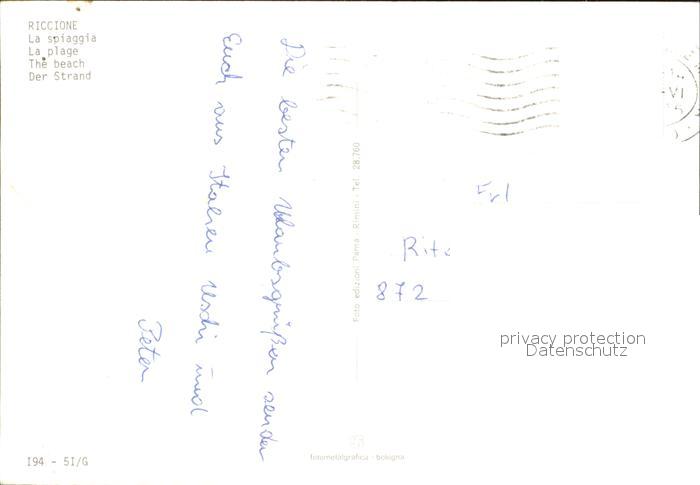 RICCIONE
La spiaggia
La plage
The beach
Der Strand
Die besten Urlaubsgrüßen senden
Euch aus Italien Uschi und
Peter
Foto edizioni Parma - Rimini - Tel. 28.760
Frl
Rita
872
privacy protection
Datenschutz
I94 - 5I/G
fotometalgrafica - bologna